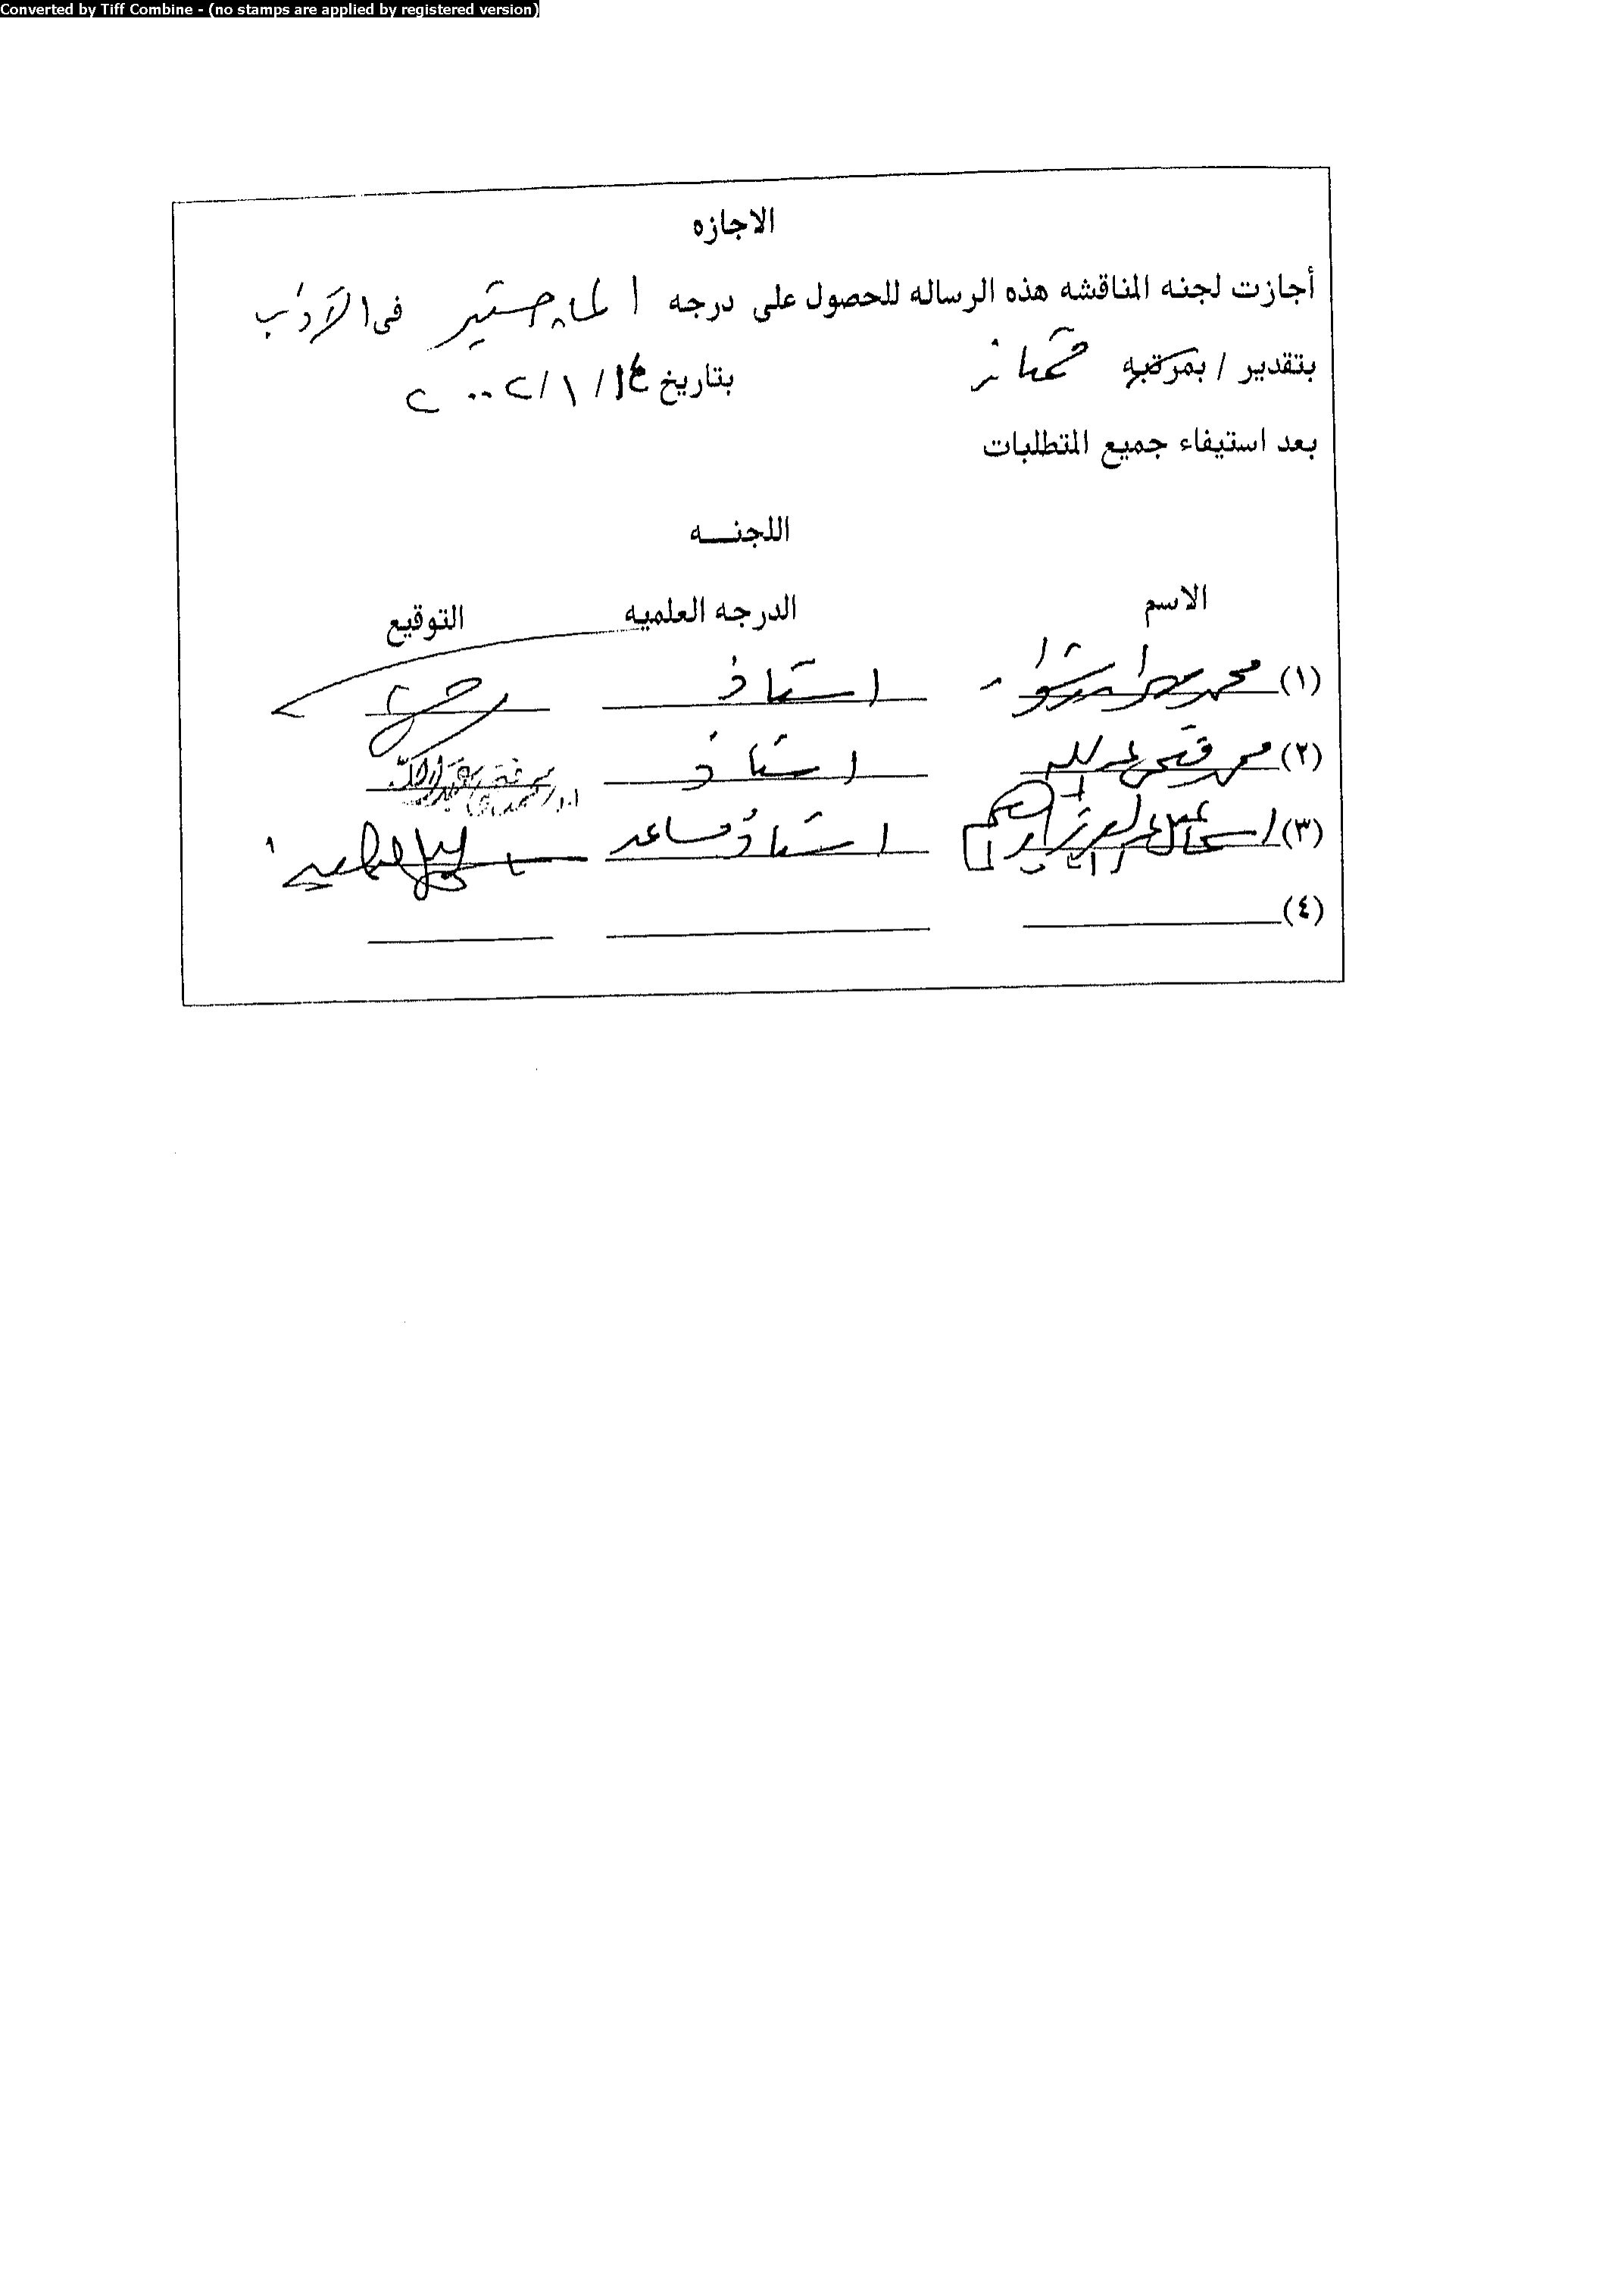 Converted by Tiff Combine - (no stamps are applied by registered version)
الاجازه
أجازت لجنه المناقشه هذه الرساله للحصول على درجه الماجستير فى الآداب
بتقدير / بمرتبه ممتاز بتاريخ ١٤/١/٢٠٠٢
بعد استيفاء جميع المتطلبات
اللجنـــه
الاسم الدرجه العلميه التوقيع
(١) محمد استاذ
(٢) محمد فتحى عبد الله استاذ
(٣) اسماعيل عبد العزيز ابراهيم استاذ مساعد
(٤)